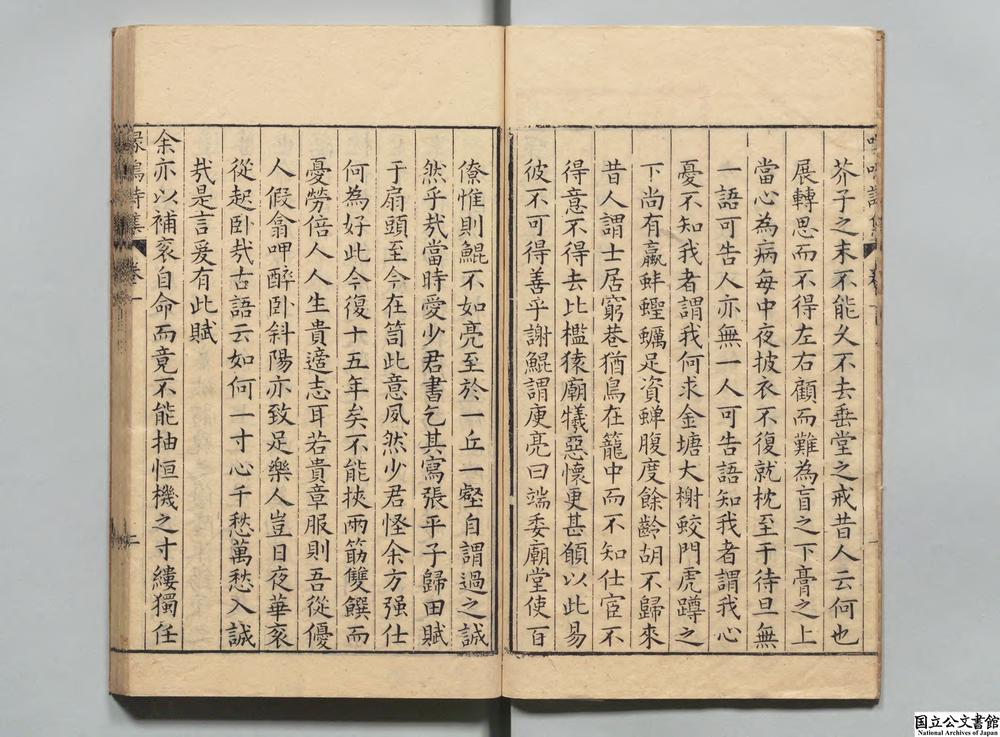 芥子之末不能久不去垂堂之戒昔人云何也
展轉思而不得左右顧而難為肓之下膏之上
當心為病每中夜披衣不復就枕至于待旦無
一語可告人亦無一人可告語知我者謂我心
憂不知我者謂我何求金塘大榭蛟門虎蹲之
下尚有蠃蚌蟶蠣足資蟬腹度餘齡胡不歸來
昔人謂士居窮巷猶鳥在籠中而不知仕宦不
得意不得去比檻猿廟犧惡懷更甚頠以此易
彼不可得善乎謝鯤謂庾亮曰端委廟堂使百
僚惟則鯤不如亮至於一丘一壑自謂過之誠
然乎㢤當時愛少君書乞其寫張平子歸田賦
于扇頭至今在笥此意夙然少君怪余方强仕
何為好此今復十五年矣不能挾兩筯雙饌而
憂勞倍人人生貴適志耳若貴章服則吾從優
人假翕呷醉臥斜陽亦致足樂人豈日夜華衮
從起臥㢤古語云如何一寸心千愁萬愁入誠
㢤是言爰有此賦
卷一
余亦以補衮自命而竟不能抽恒機之寸縷獨任
国立公文書館
National Archives of Japan